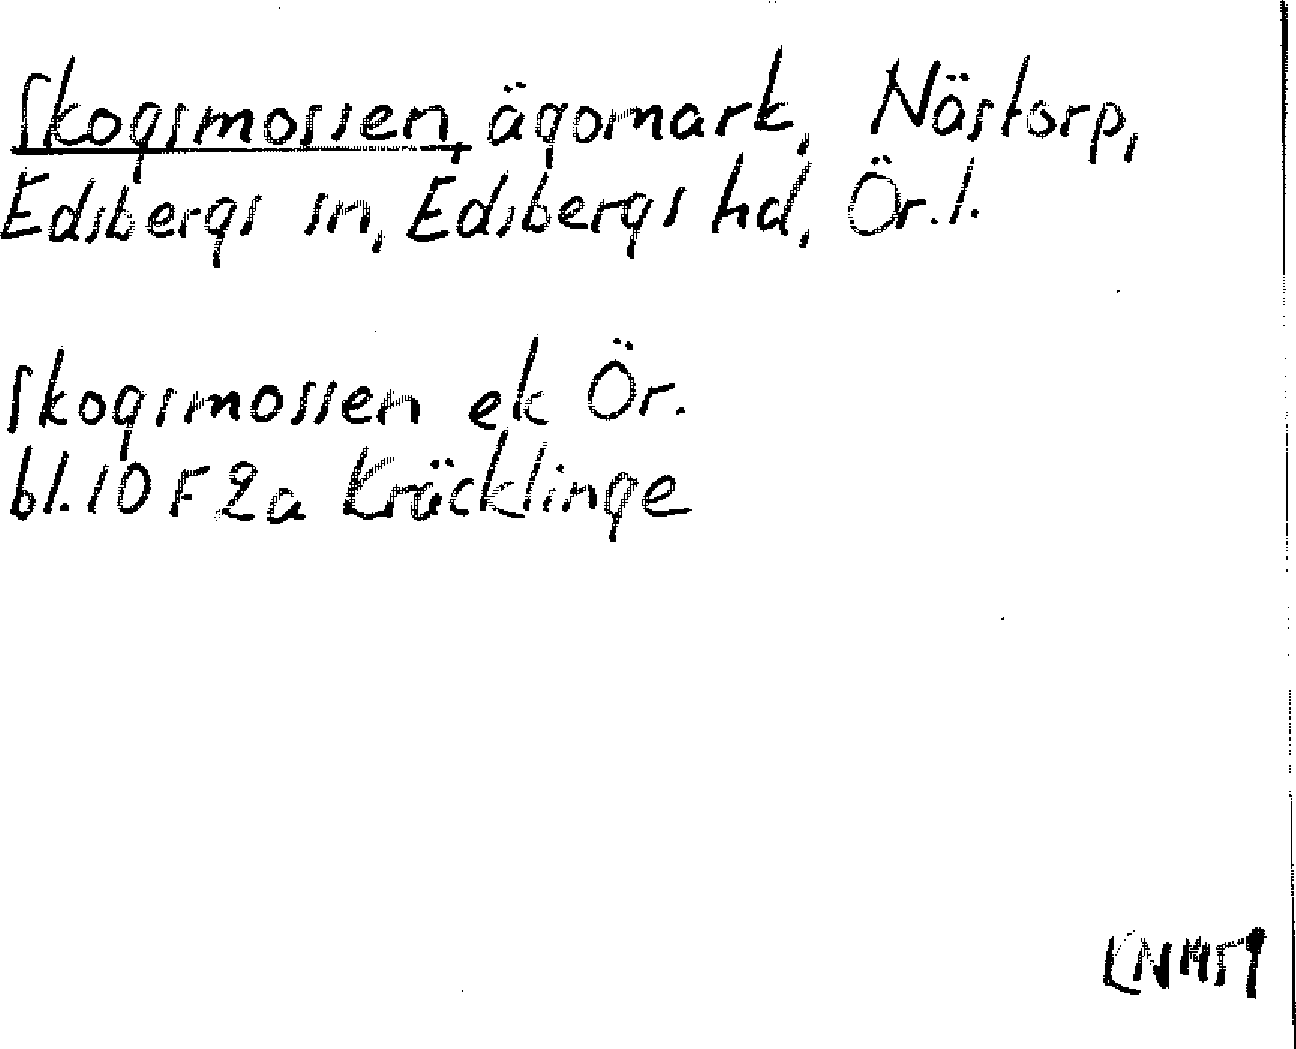 Skogsmossen, ägomark, Nästorp,
Edsbergs sn, Edsbergs hd, Ör.l.
Skogsmossen ek Ör.
bl. 10 F 2a Kräcklinge